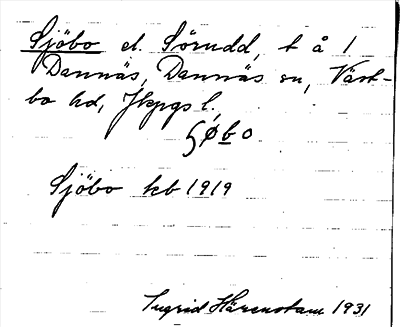 Sjöbo el. Sörudd, t å 1
Dannäs, Dannäs sn, Väst-
bo hd, Jkpgs l.
ʃøbo
Sjöbo kb 1919
Ingrid Härenstam 1931